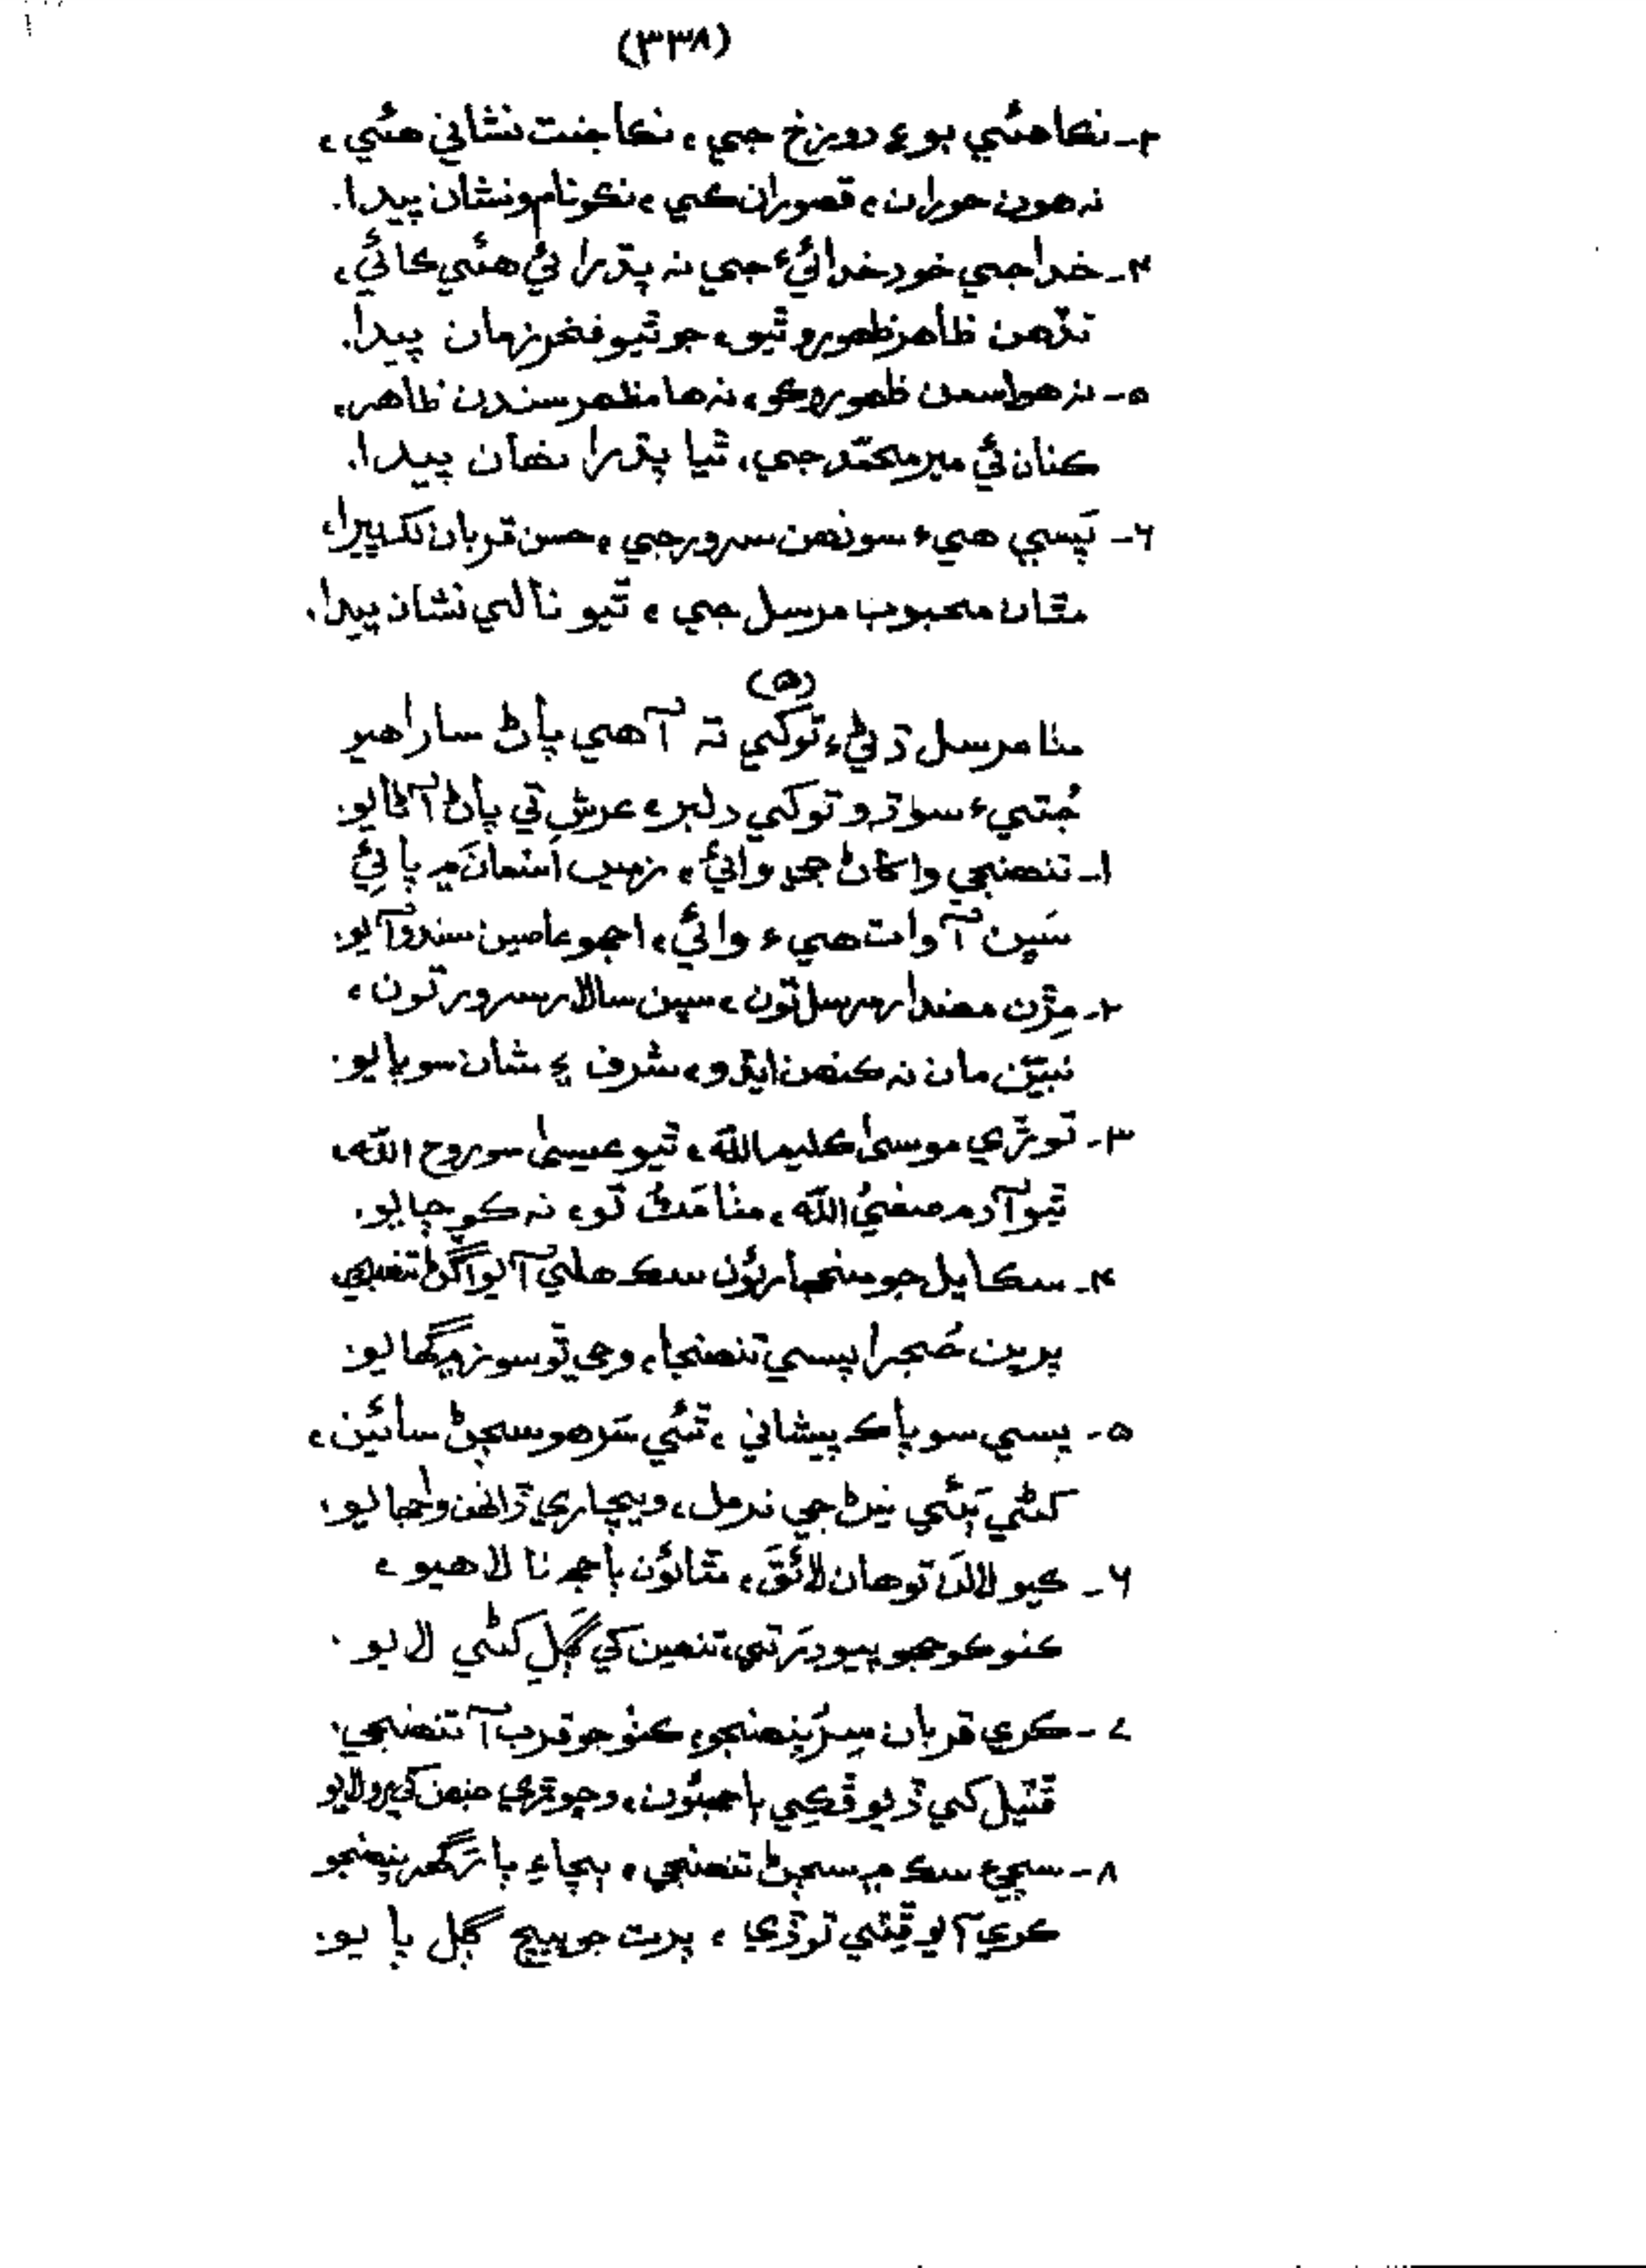 (٣٣٨)
٣ـ نڪا هئي بوءِ دوزخ جي، نڪا جنت نشاني هئي،
نہ هون حوران، قصوران ڪي، نڪو نام و نشان پيدا.
٤ـ خدا جي خود خدائيءَ جي نہ پڌرائي هئي ڪائي،
تڏهن ظاهر ظهورو ٿيو، جو ٿيو فخر زمان پيدا.
٥ـ نہ هو اسمن ظهورو ڪو، نہ ها مظهر سندن ظاهر،
ڪنان ئي مير محمّد جي، ٿيا پڌرا نهان پيدا.
٦ـ پَسي هيءَ سونهن سرور جي، حسن قربان لک ڀيرا،
مٿان محبوب مرسل جي، ٿيو نالي نشان پيدا.
(٥)
مٺا مرسل ڌڻيءَ توکي تہ آهي پاڻ ساراهيو
جُتيءَ سوڌو توکي دلبر، عرش تي پاڻ آڻايو.
١ـ تنهنجي واکاڻ جي وائي، زمين اَسمانَ ۾ پائي
سَڀن آ وات هيءَ وائي، اجهو عاصين سندو آيو.
٢ـ مِڙن مهندار مرسل تون، سڀن سالار سرور تون،
نَبيّن مان نہ ڪنهن ايڏو، شرف ۽ شان سو پايو.
٣ـ توڙي موسىٰ ڪليم الله، ٿيو عيسىٰ سو روح الله،
ٿيو آدم صفيُ الله، مٺا مَٽُ تو، نہ ڪو ڄايو.
٤ـ سڪايل جو سنڀاريئون سڪ هلي آيو اڱڻ تنهنجي
پرين حُجرا پسي تنهنجا، وڃي ٿو سوز ۾ گهايو.
٥ـ پسي سو پاڪ پيشاني، ٿئي سَرهو سڄڻ سائين،
کڻي پَئي نيڻ جي نرمل، ويچاري ڏانهن واجهايو.
٦ـ ڪيو لالَن توهان لائق، مٿائون ٻاجهہ نا لاهيو،
ڪنو ڪوجهو پيو دَر تي، تنهين کي ڳلِ کڻي لايو.
٧ـ ڪري قربان سِرُ پنهنجو، ڪٺو جو قرب آ تنهنجي،
ڦٽيل کي ڏيو ڦڪي ٻاجهئون، وڃو ٿري جنهن کي رولايو
٨ـ سچيءَ سڪ ۾ سڄڻ تنهنجي، ٻچا ۽ ٻار گهر پنهنجو
ڪري آيو ڦِٽي توڙي، پرت جو پيچ ڳل پايو.